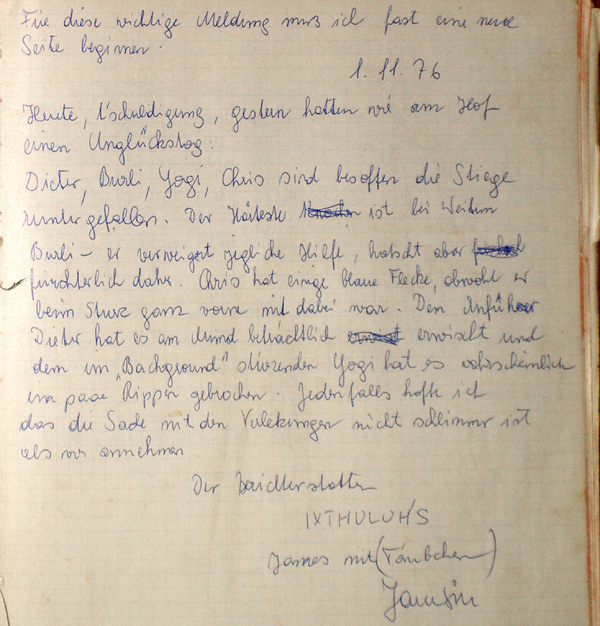 Für diese wichtige Meldung muß ich fast eine neue
Seite beginnen.
1. 11. 76
Heute, t'schuldigung, gestern hatten wir am Hof
einen Unglückstag:
Dieter, Burli, Yogi, Chris sind besoffen die Stiege
runtergefallen. Der Härteste ist bei Weitem
Burli – er verweigert jegliche Hilfe, hatscht aber
fürchterlich daher. Chris hat einige blaue Flecke, obwohl er
beim Sturz ganz vorne mit dabei war. Den Anführer
Dieter hat es am Mund beträchtlich erwischt und
dem im "Background" stürzenden Yogi hat es wahrscheinlich
ein paar Rippen gebrochen. Jedenfalls hoffe ich
das die Sache mit den Verletzungen nicht schlimmer ist
als wir annehmen
Der Berichterstatter
IXTHULUH'S
James mit (Täubchen)